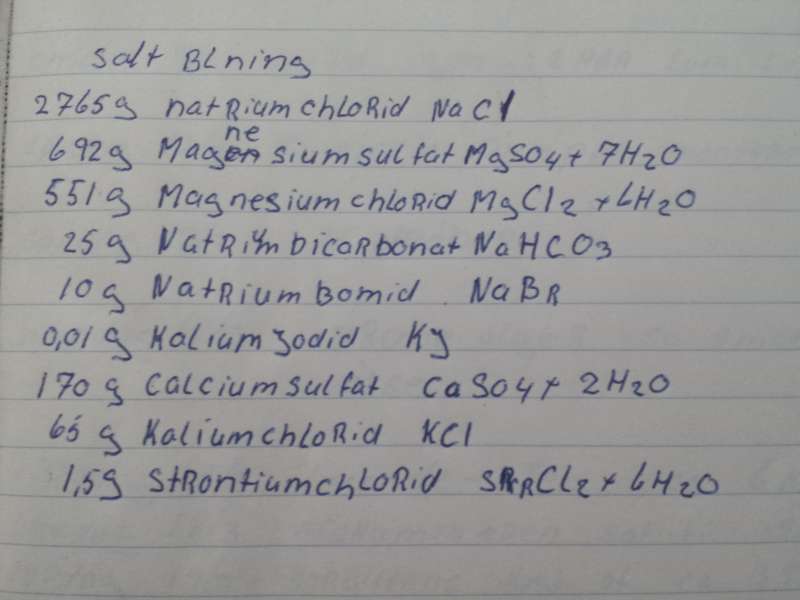 Salt BLning
2765g natRiumchloRid NaCl
692g Magnesiumsulfat MgSO4 + 7H2O
551g MagnesiumchloRid MgCl2 + 6H2O
25g NatRiumbicaRbonat NaHCO3
10g NatRiumBomid NaBR
0,01g KaliumJodid KJ
170g Calciumsulfat CaSO4 + 2H2O
65g KaliumchloRid KCl
1,5g StRontiumchLoRid SRCl2 + 6H2O